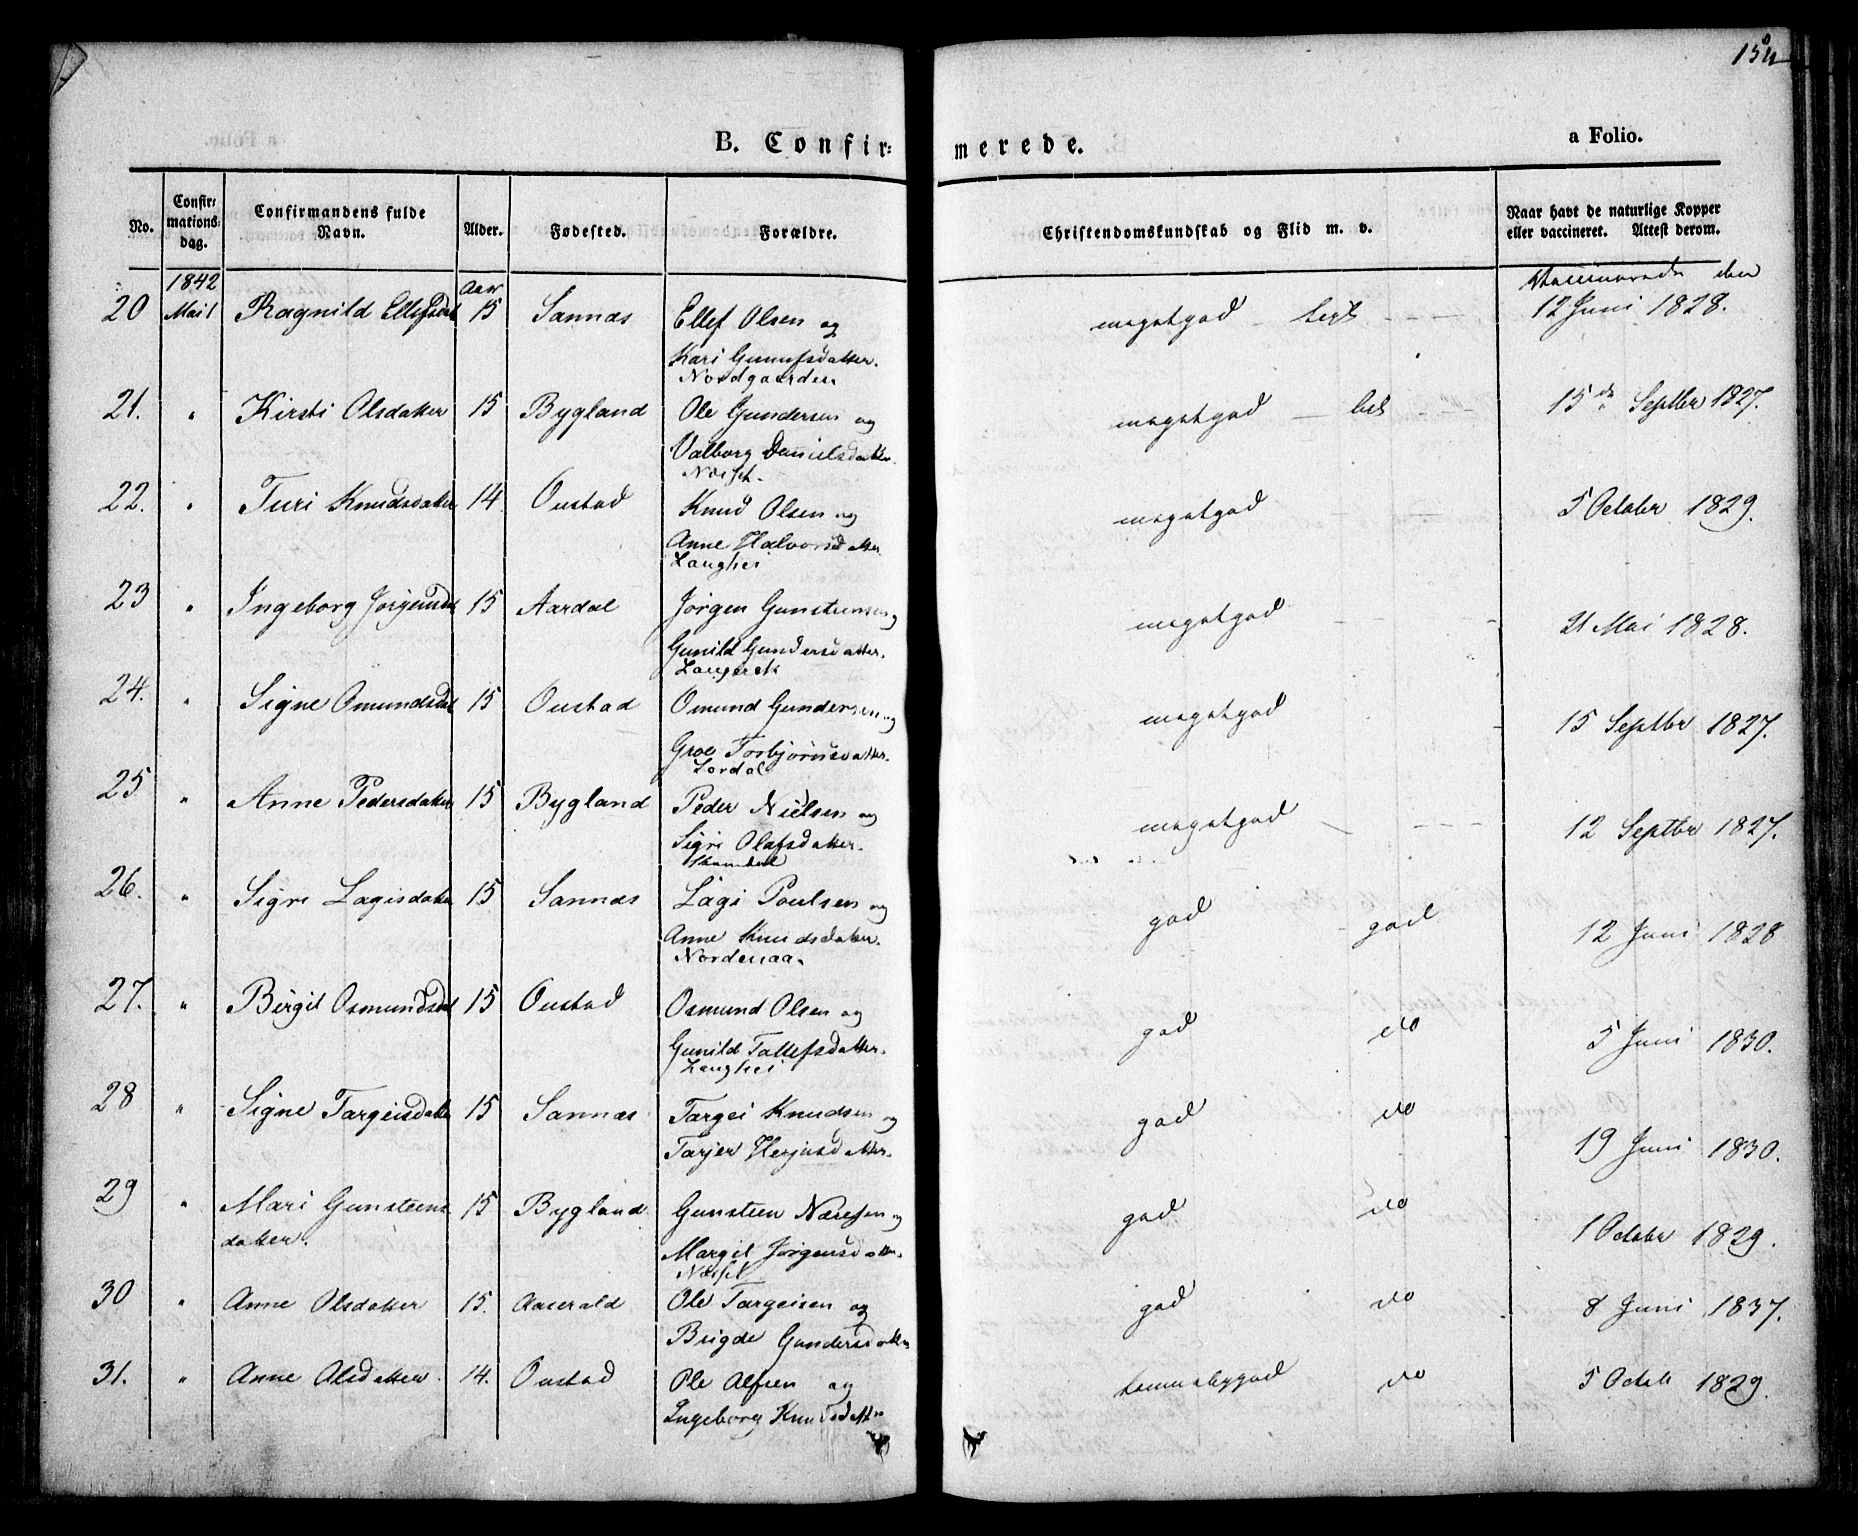 B. Confir= merede.
a Folio.
No. Confir= mations= dag. Confirmandens fulde Navn. Alder. Fødested. Forældre. Christendomskundskab og Flid m. v. Naar havt de naturlige Kopper eller vaccineret. Attest derom.
1842 Aar Vaccinerede den
20 Mai 1 Ragnild Ellefsdat 15 Sannæs Ellef Olsen og meget god 12 Juni 1828.
Kari Gunufsdatter.
Nordgaarden
21. " Kirsti Olsdatter 15 Bygland Ole Gundersen og meget god 15 de Septbr 1827.
Valborg Danielsdatter
Næsset.
22. " Turi Knudsdatter 14 Oustad Knud Olsen og meget god 5 October 1829.
Anne Halvorsdatter
Langhei
23 " Ingeborg Jørgensdat 15 Aardal Jørgen Gunsteensen og meget god 21 Mai 1828.
Gunild Gundersdatter.
Langerak
24. " Signe Omundsdat 15 Oustad Osmund Gundersen og meget god 15 Septbr 1827.
Groe Torbjørnsdatter.
Lordal
25 " Anne Pedersdatter 15 Bygland Peder Nielsen og meget god 12 Septbr 1827.
Sigri Olafsdatter.
26. " Sigri Lagisdatter 15 Sannæs Lagi Poulsen og god god 12 Juni 1828
Anne Knudsdatter.
Nordenaa.
27. " Birgit Osmundsdat 15 Oustad Osmund Olsen og god do 5 Juni 1830.
Gunild Tallefsdatter.
Langhei
28 " Signe Targeisdatter 15 Sannæs Targei Knudsen og god do 19 Juni 1830.
Tarjer Herjusdatter.
29 " Mari Gunsteens 15 Bygland Gunsteen Næresen og god do 1 Octobr 1829.
datter. Margit Jørgensdatter.
Næsset
30 " Anne Olsdatter 15. Aaserald Ole Targeisen og god do 8 Juni 1837.
Brigde Gundersdatter
31. " Anne Olsdatter. 14. Oustad Ole Alfsen og temmelig god do 5 Octob 1829.
Ingeborg Knudsdatter